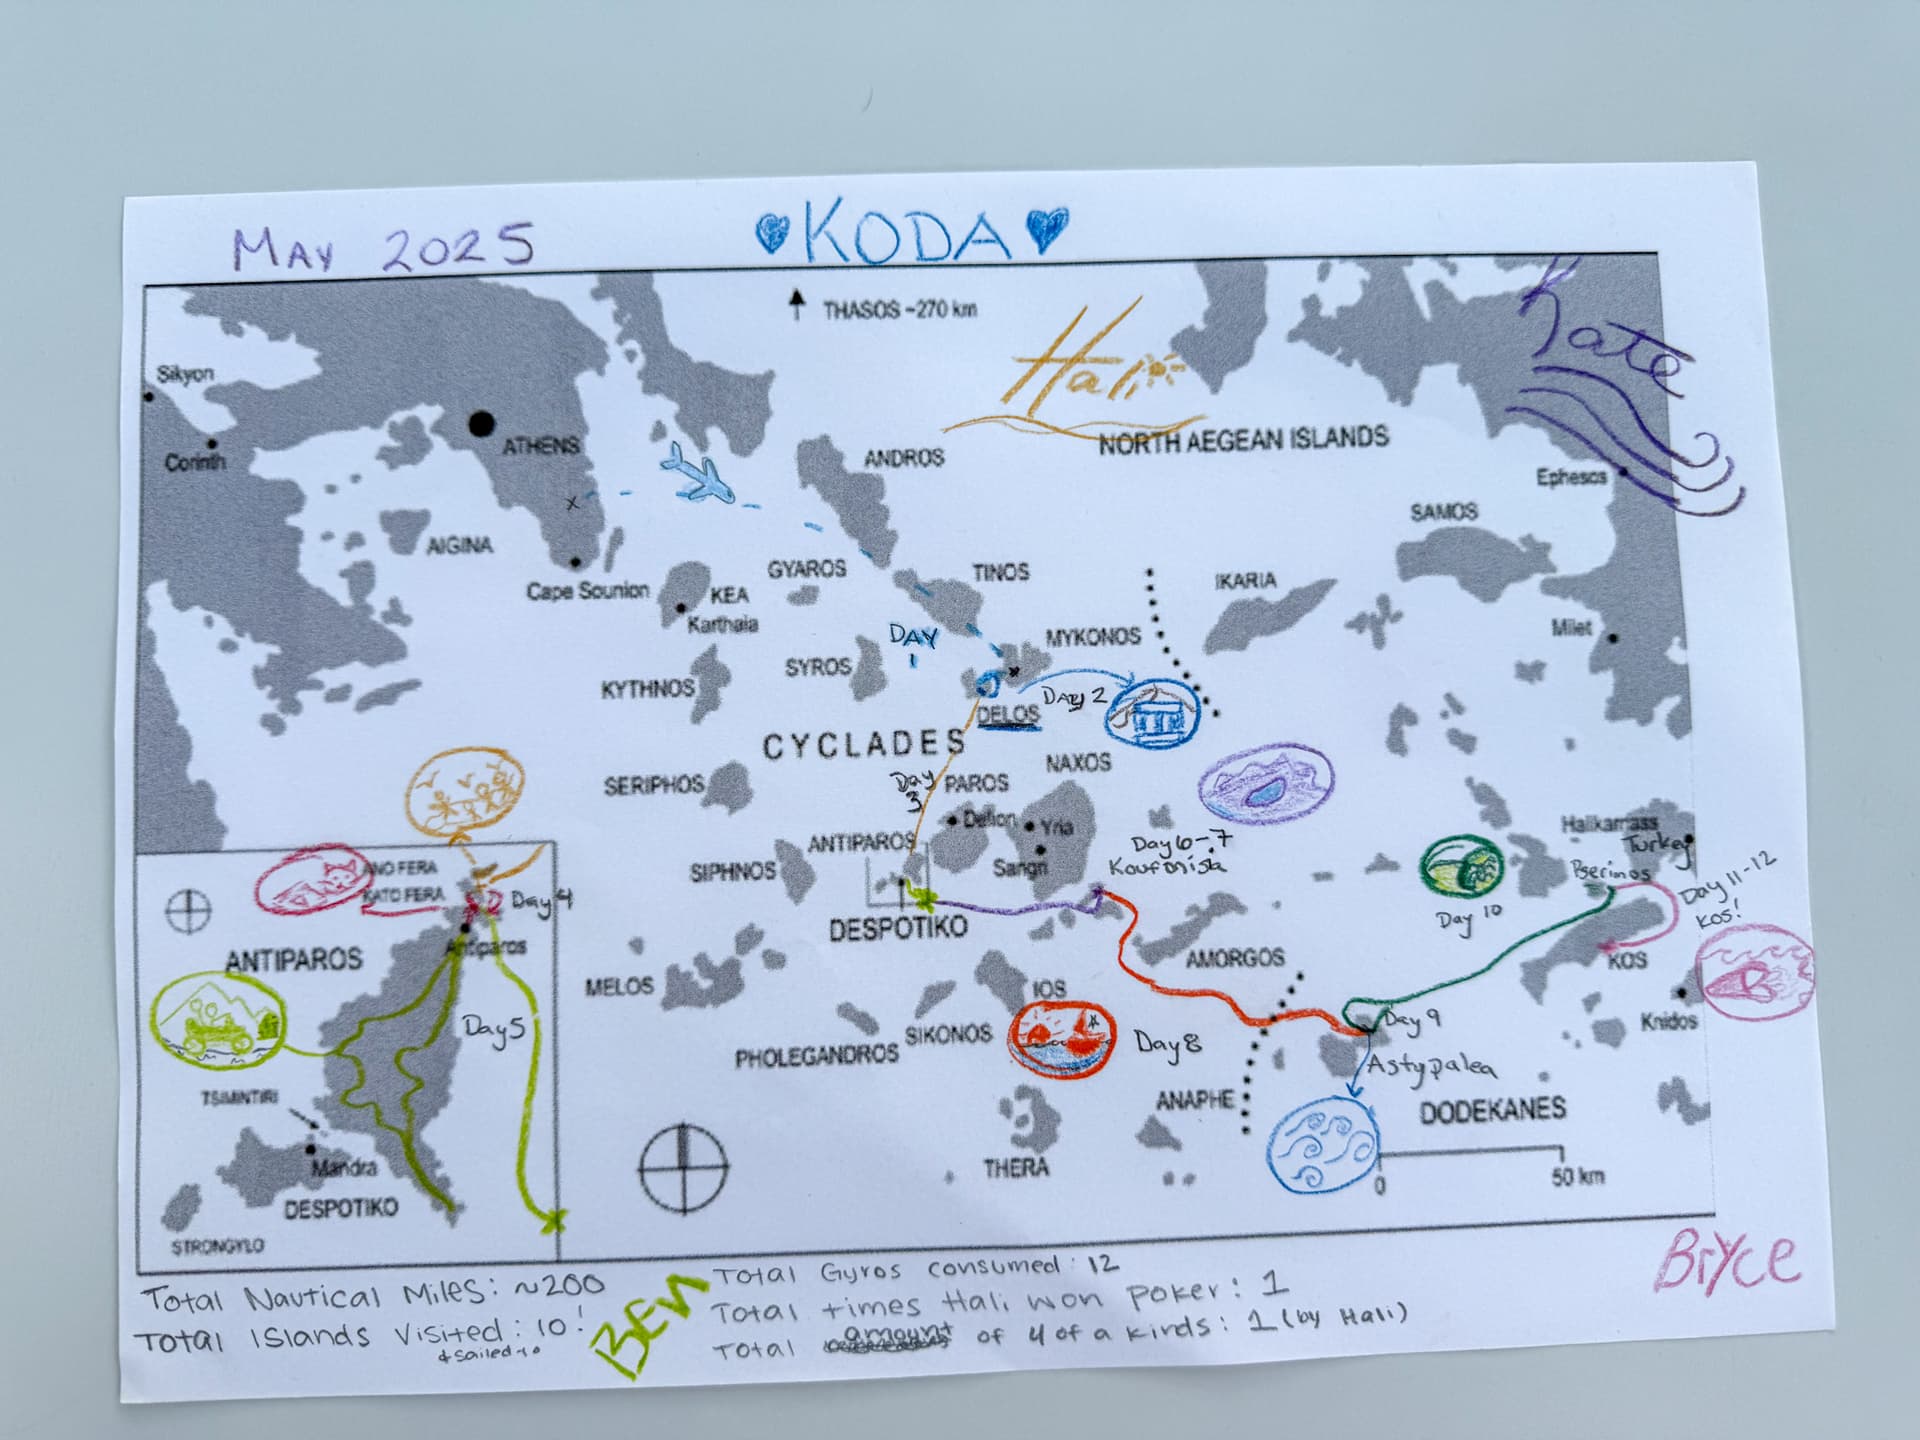 MAY 2025
KODA
THASOS ~270 km
Hali
Kate
Sikyon
Corinth
ATHENS
ANDROS
NORTH AEGEAN ISLANDS
Ephesos
AIGINA
SAMOS
Cape Sounion
KEA
Karthaia
GYAROS
TINOS
IKARIA
DAY
1
MYKONOS
Milet
KYTHNOS
SYROS
DELOS
Day 2
CYCLADES
SERIPHOS
Day
3
PAROS
NAXOS
Delion
Yria
Sangri
ANTIPAROS
SIPHNOS
DESPOTIKO
Day 6-7
Koufonisia
Halikarnass
Turkey
Pserimos
Day 10
Day 11-12
KOS!
KOS
Knidos
ANO FERA
KATO FERA
Day 4
Antiparos
ANTIPAROS
Day 5
TSIMINTIRI
Mandra
DESPOTIKO
STRONGYLO
MELOS
AMORGOS
IOS
SIKONOS
PHOLEGANDROS
Day 8
Day 9
Astypalea
THERA
ANAPHE
DODEKANES
0
50 km
Bryce
Total Nautical Miles: ~200
Total Islands Visited: 10!
& sailed to
BEN
Total Gyros consumed: 12
Total times Hali won poker: 1
Total amount of 4 of a kinds: 1 (by Hali)